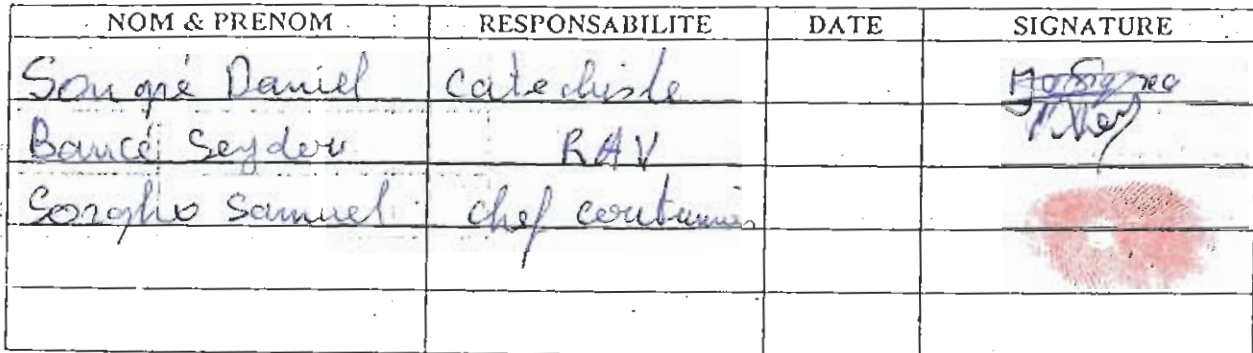 NOM & PRENOM RESPONSABILITE DATE SIGNATURE
Songré Daniel Catechiste
Bancé Seydou RAV
Sorgho Samuel chef coutumier